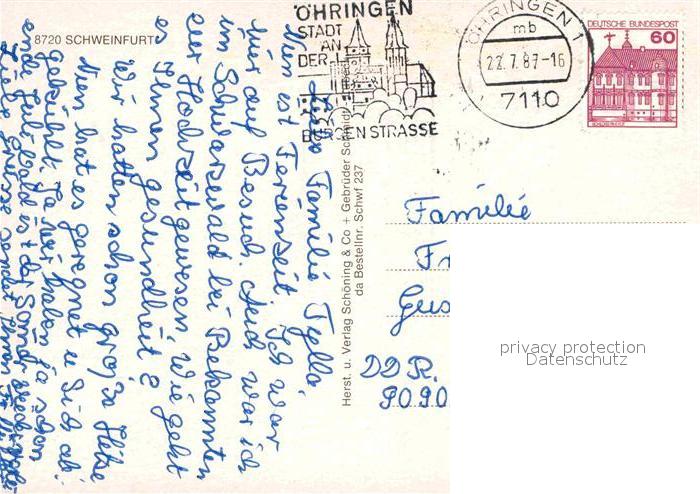 8720 SCHWEINFURT
ÖHRINGEN
STADT
AN
DER
BURGENSTRASSE
ÖHRINGEN 1
mb
22.7.87-16
7110
DEUTSCHE BUNDESPOST
60
Liebe Familie Tylla,
Nun ist Ferienzeit. Ich war
nur auf Besuch. Auch war ich
im Schwarzwald bei Bekannten
zur Hochzeit gewesen. Wie geht
es Ihnen gesundheit?
Wir hatten schon große Hitze
Nun hat es geregnet u. sich ab
gekühlt. Ja wir haben ja schon
ende Juli. Bald ist der Sommer wieder
Liebe Grüsse sendet Ihnen
Herst. u. Verlag Schöning & Co + Gebrüder Schmidt
da Bestellnr. Schwf 237
Familie
Fr
Gus
DDR.
9090
privacy protection
Datenschutz